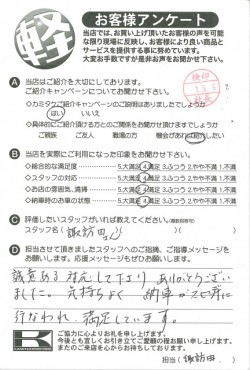 軽
お客様アンケート
当店では、お買い上げ頂いたお客様の声を可能
な限り現場に反映し、お客様により良い商品と
サービスを提供する事に努めています。
大変お手数ですが是非お声をお聞かせ下さい。
A 当店はご紹介を大切にしております。
ご紹介キャンペーンについてお聞かせ下さい。
◇カミタケご紹介キャンペーンのご説明はありましたでしょうか
はい いいえ
◇具体的にご紹介頂ける方とのご関係をお聞かせ頂けますでしょうか
ご親族 ご友人 職場の方 機会があれば紹介したい
B 当店を実際にご利用になった印象をお聞かせ下さい。
◇総合的な満足度 5.大満足 4.満足 3.ふつう 2.やや不満 1.不満
◇スタッフの対応 5.大満足 4.満足 3.ふつう 2.やや不満 1.不満
◇お店の雰囲気、清掃 5.大満足 4.満足 3.ふつう 2.やや不満 1.不満
◇納車時のお車の状態 5.大満足 4.満足 3.ふつう 2.やや不満 1.不満
C 評価したいスタッフがいれば教えてください。(複数回答可)
スタッフ名( 諏訪田さん )
D 担当させて頂きましたスタッフへのご指摘、ご指導メッセージを
お願いします。応援メッセージもぜひお願いします。
誠意ある対応して下さり ありがとうござい
ました。気持ちよく 納車がスピーディに
行なわれ 満足しています。
ご協力に心よりお礼を申し上げます。
今後とも宜しくお引き立てご愛顧の程お願い申し上げます。
またのご来店を心からお待ちしております。
担当( 諏訪田 )